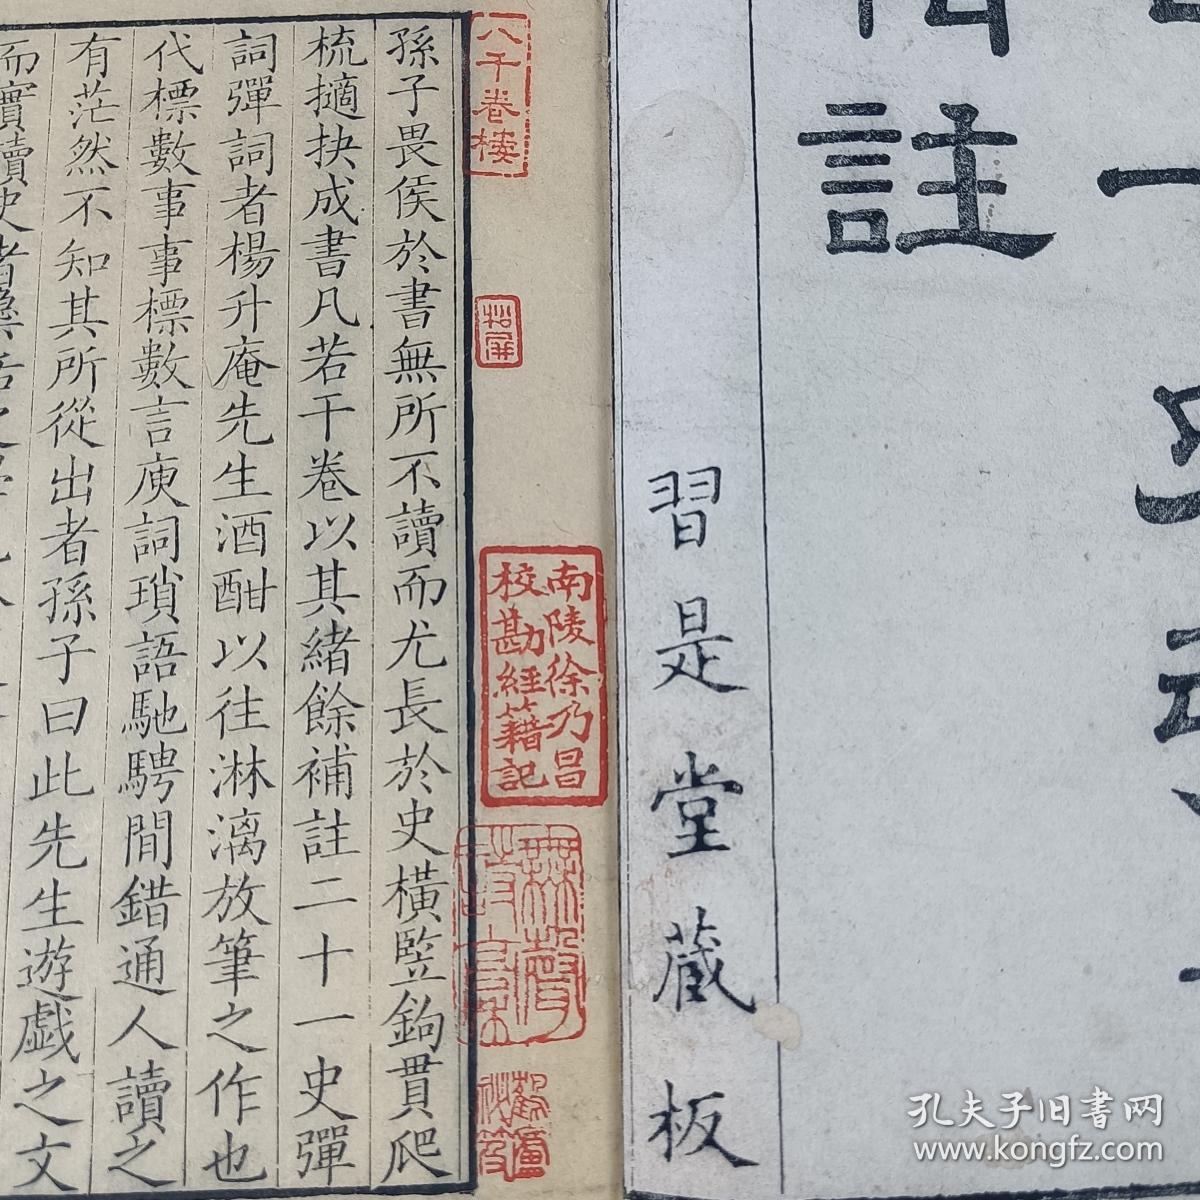 註
習是堂蔵板
八千卷樓
南陵徐乃昌
校勘經籍記
孫子畏侯於書無所不讀而尤長於史橫監鉤貫爬
梳擿抉成書凡若干卷以其緒餘補註二十一史彈
詞彈詞者楊升庵先生酒酣以往淋漓放筆之作也
代標數事事標數言庾詞瑣語馳騁間錯通人讀之
有茫然不知其所從出者孫子曰此先生遊戯之文
而實讀史者
孔夫子旧書网
www.kongfz.com